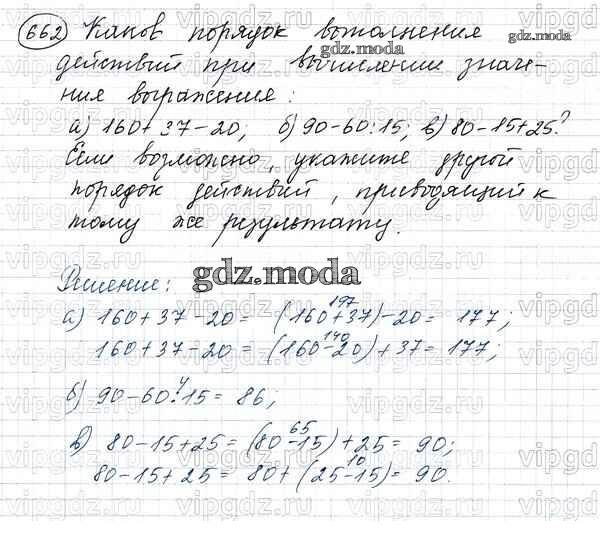 662 Каков порядок выполнения
действий при вычислении значе-
ния выражения:
а) 160+37-20; б) 90-60:15; в) 80-15+25?
Если возможно, укажите другой
порядок действий, приводящий к
тому же результату.
gdz.moda
Решение:
gdz.moda
197
а) 160+37-20= (160+37)-20= 177;
140
160+37-20= (160-20)+37= 177;
4
б) 90-60:15= 86;
65
в) 80-15+25= (80-15)+25= 90;
10
80-15+25= 80+(25-15)= 90.
gdz.moda
vipgdz